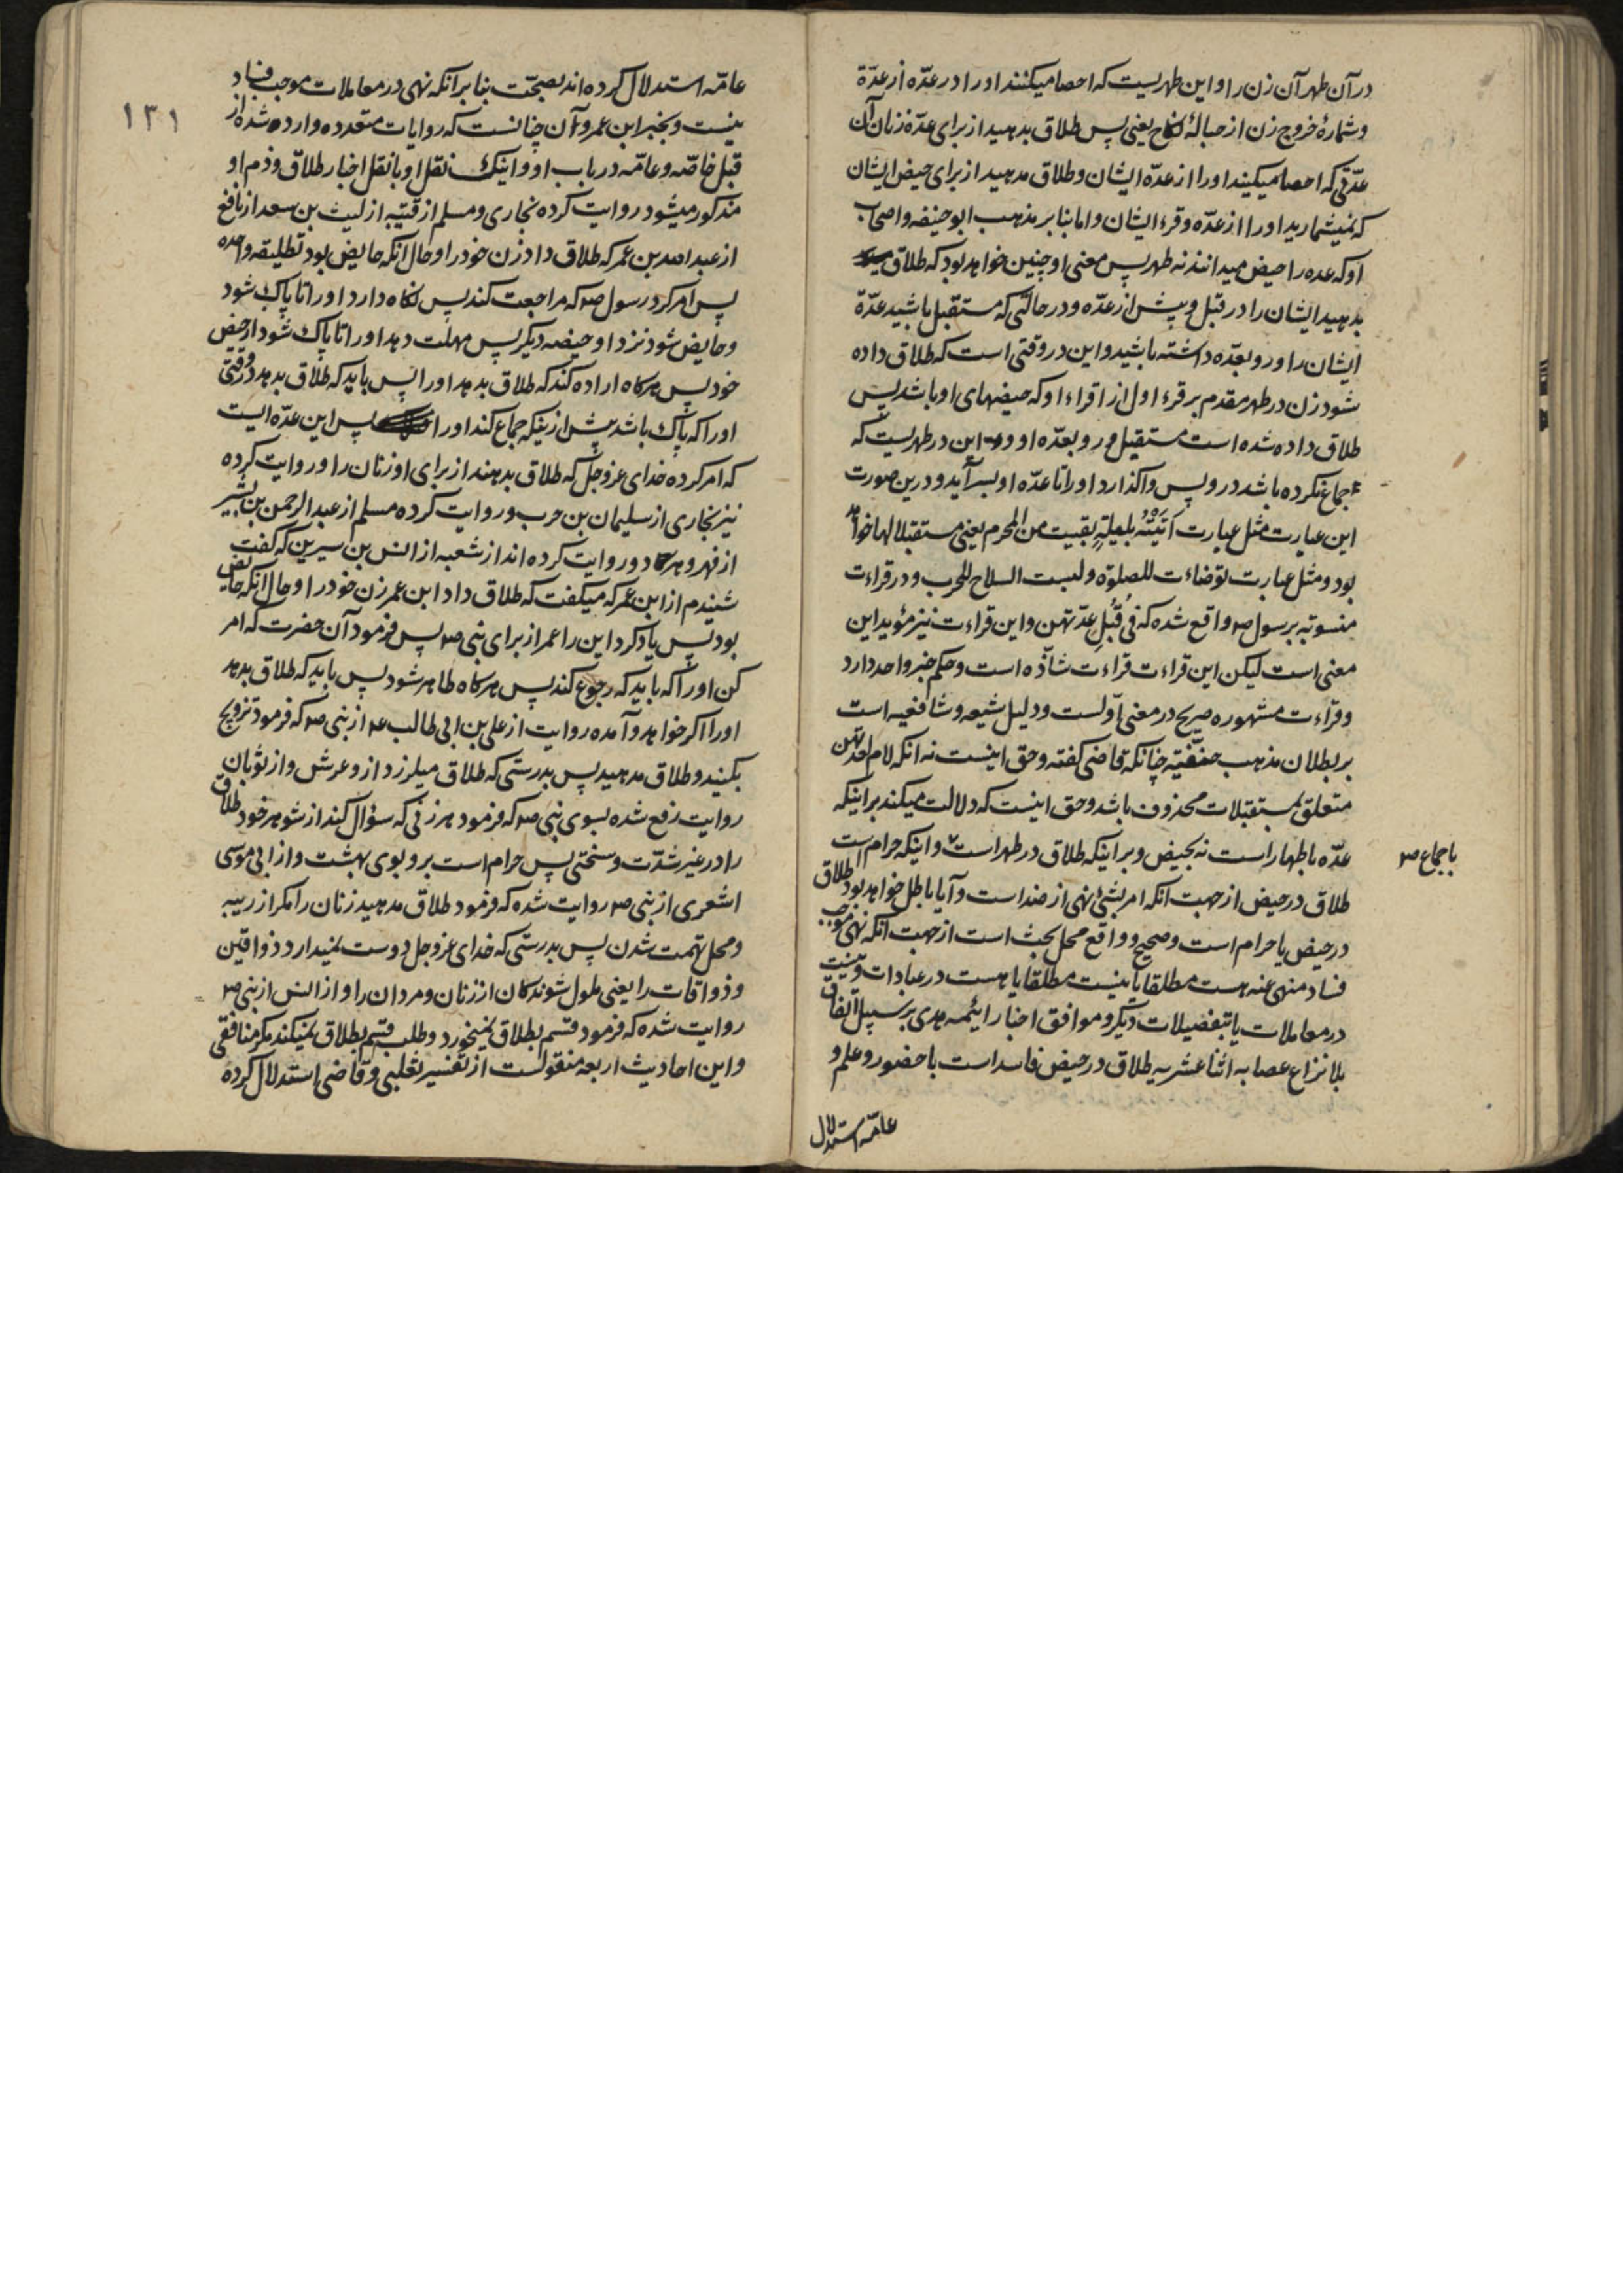 درآن طهر آن زن را و این طهریست که احصا میکنند او را در عدّه از عدّة
و شمارهٔ خروج زن از حبالهٔ نکاح یعنی پس طلاق بدهید از برای عدّهٔ زنان آن
عدّتی که احصا میکنید او را از عدّه ایشان و طلاق مدهید از برای حیض ایشان
که نمیشمارید او را از عدّه و قرء ایشان و اما بنا بر مذهب ابو حنیفه و اصحاب
او که عده را حیض میدانند نه طهر پس معنی او چنین خواهد بود که طلاق
بدهید ایشان را در قبل و پیش از عدّه و در حالتی که مستقبل باشید عدّة
ایشان را و رو بعدّه داشته باشید و این در وقتی است که طلاق داده
شود زن در طهر مقدم بر قرء اول از اقراء او که حیضهای او باشد پس
طلاق داده شده است مستقبل و رو بعدّه او و این در طهریست که
جماع نکرده باشد درو پس واگذارد او را تا عدّه او بسر آید و درین صورت
این عبارت مثل عبارت اَتَیْتُهُ بلیلةٍ بقیت من المحرم یعنی مستقبلا لها خواهد
بود و مثل عبارت توضاءت للصلوة و لبست السلاح للحرب و در قراءت
منسوبه برسول ص واقع شده که فی قُبُلِ عدّتهن و این قراءت نیز مؤید این
معنی است لیکن این قراءت قراءت شاذّه است و حکم خبر واحد دارد
و قراءت مشهوره صریح در معنی اوّلست و دلیل شیعه و شافعیه است
بر بطلان مذهب حنفیّه چنانکه قاضی گفته و حق اینست نه انکه لام لعدتهن
متعلق بمستقبلات محذوف باشد و حق اینست که دلالت میکند بر اینکه
عدّه باطهار است نه بحیض و بر اینکه طلاق در طهر است و اینکه حرام است
باجماع ص
طلاق در حیض از جهت انکه امر بشئ نهی از ضد است و آیا باطل خواهد بود طلاق
در حیض یا حرام است و صحیح و واقع محل بحث است از جهت انکه نهی موجب
فساد منهی عنه هست مطلقا یا نیست مطلقا یا هست در عبادات و نیست
در معاملات یا بتفصیلات دیگر و موافق اخبار ائمه هدی بر سبیل اتفاق
بلا نزاع عصابه اثنا عشریه طلاق در حیض فاسد است با حضور و علم و
عامّه استدلال
١٣١
عامّه استدلال کرده اند بصحّت بنا بر انکه نهی در معاملات موجب فساد
نیست و بخبر ابن عمر و آن چنانست که روایات متعدده وارده شده از
قبل خاصّه و عامّه در باب او و اینک نقل او با نقل اخبار طلاق و ذم او
مذکور میشود روایت کرده بخاری و مسلم از قتیبه از لیث بن سعد از نافع
از عبد الله بن عمر که طلاق داد زن خود را و حال انکه حایض بود تطلیقه واحده
پس امر کرد رسول ص که مراجعت کند پس نگاه دارد او را تا پاک شود
و حایض شود نزد او حیضه دیگر پس مهلت دهد او را تا پاک شود از حیض
خود پس هرگاه اراده کند که طلاق بدهد او را پس باید که طلاق بدهد در وقتی
او را که پاک باشد پیش ازینکه جماع کند او را پس این عدّه ایست
که امر کرده خدای عز و جل که طلاق بدهند از برای او زنان را و روایت کرده
نیز بخاری از سلیمان بن حرب و روایت کرده مسلم از عبد الرحمن بن بشیر
از فهر و هر دو روایت کرده اند از شعبه از انس بن سیرین که گفت
شنیدم از ابن عمر که میگفت که طلاق داد ابن عمر زن خود را و حال انکه حایض
بود پس یاد کرد این را عمر از برای نبی ص پس فرمود آن حضرت که امر
کن او را که باید که رجوع کند پس هرگاه طاهر شود پس باید که طلاق بدهد
او را اگر خواهد و آمده روایت از علی بن ابی طالب ع از نبی ص که فرمود تزویج
بکنید و طلاق مدهید پس بدرستی که طلاق میلرزد ازو عرش و از ثوبان
روایت رفع شده بسوی نبی ص که فرمود هر زنی که سؤال کند از شوهر خود طلاق
را در غیر شدّت و سختی پس حرام است برو بوی بهشت و از ابی موسی
اشعری از نبی ص روایت شده که فرمود طلاق مدهید زنان را مگر از ریبه
و محل تهمت شدن پس بدرستی که خدای عز و جل دوست نمیدارد ذواقین
و ذواقات را یعنی ملول شوندگان از زنان و مردان را و از انس از نبی ص
روایت شده که فرمود قسم بطلاق نمیخورد و طلب قسم بطلاق نمیکند مگر منافقی
و این احادیث اربعه منقولست از تفسیر ثعلبی و قاضی استدلال کرده